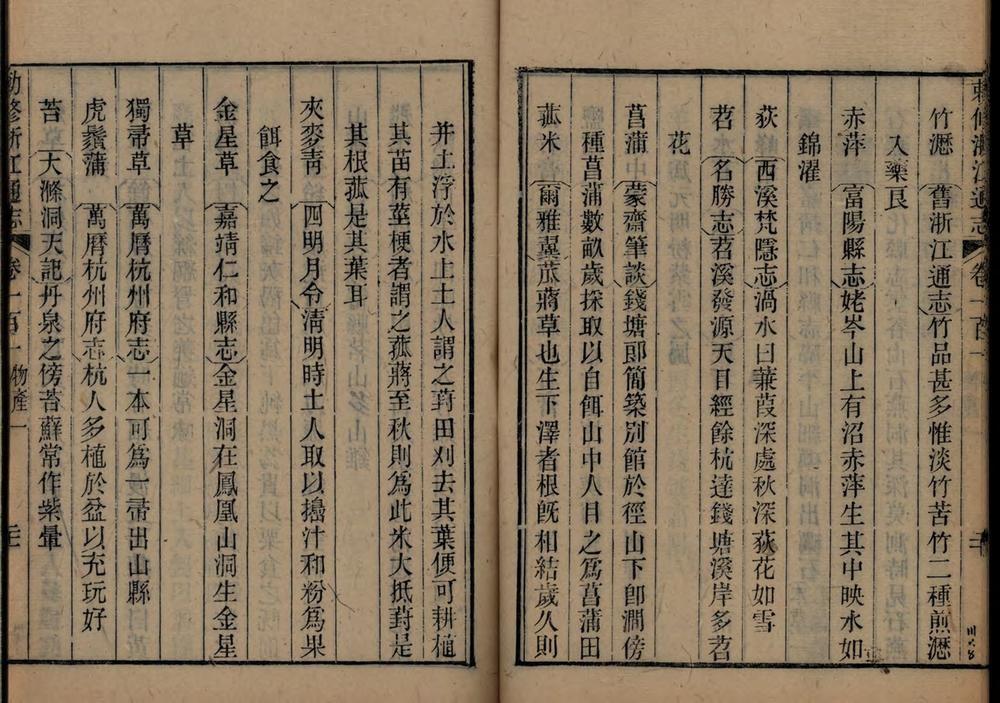 敕修浙江通志 卷一百一
竹瀝 舊浙江通志竹品甚多惟淡竹苦竹二種煎瀝
入藥良
赤萍 富陽縣志姥岑山上有沼赤萍生其中映水如
錦濯
荻 西溪梵隱志渦水曰蒹葭深處秋深荻花如雪
苕 名勝志苕溪發源天目經餘杭達錢塘溪岸多苕
花
菖蒲 蒙齋筆談錢塘郎簡築別館於徑山下卽澗傍
種菖蒲數畝歲採取以自餌山中人目之爲菖蒲田
菰米 爾雅翼苽蔣草也生下澤者根旣相結歲久則
并土浮於水上土人謂之葑田刈去其葉便可耕植
其苗有莖梗者謂之菰蔣至秋則爲此米大抵葑是
其根菰是其葉耳
夾麥青 四明月令淸明時土人取以搗汁和粉爲果
餌食之
金星草 嘉靖仁和縣志金星洞在鳳凰山洞生金星
草
獨帚草 萬曆杭州府志一本可爲一帚出山縣
虎鬚蒲 萬曆杭州府志杭人多植於盆以充玩好
苔 大滌洞天記丹泉之傍苔蘚常作紫暈
勅修浙江通志 卷一百一 物產一